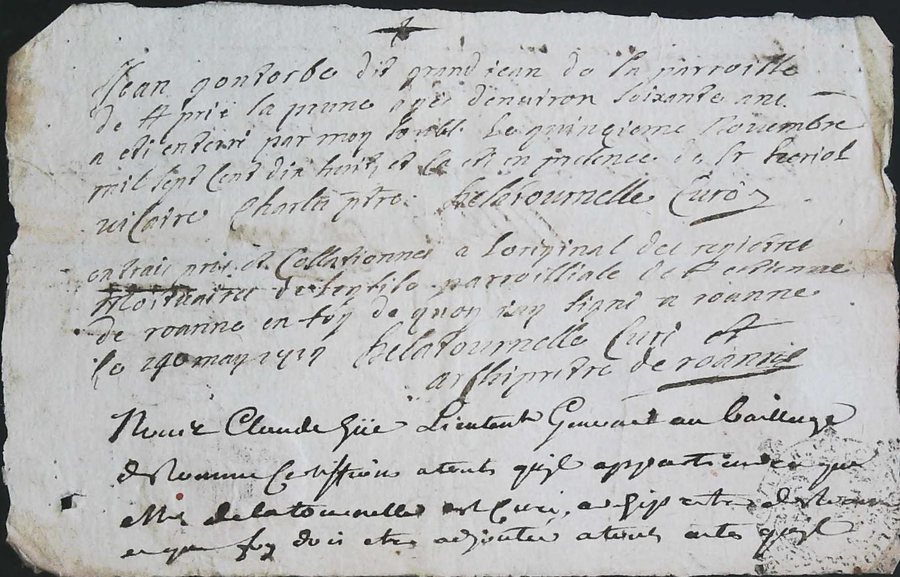 Jean gontorbe dit grand jean de la parroisse
de St priё la prune agé denviron soixante ans
a eté enterré par moy soubs. le quinzieme Novembre
mil sept cent dix huit, et ca eté en presence de Sr
vicaire Charles ptre. Delatournelle Curé
extrait pris et Collationné a loriginal des registres
mortuaires de leglise parroissiale de St estienne
de roanne en foy de quoy iay signé a roanne
le may Delatournelle Curé et
archiprêtre de roanne
Nous Claude Lieutent General au bailliage
de Roanne Certiffion a tous quil appartiendra que
Mre delatournelle est Curé, archipretre de Roanne
et que foy doit etre adjoutée a tous actes quil